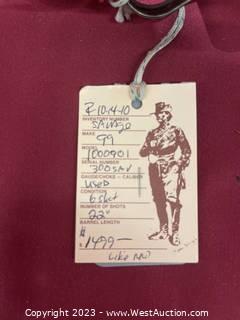 R-10-14-10
INVENTORY NUMBER
SAVAGE
MAKE
99
MODEL
1000901
SERIAL NUMBER
300 SAV
GAUGE/CHOKE - CALIBER
USED
CONDITION
6 shot
NUMBER OF SHOTS
22"
BARREL LENGTH
$ 1499-
Like New
Copyright © 2023 - www.WestAuction.com